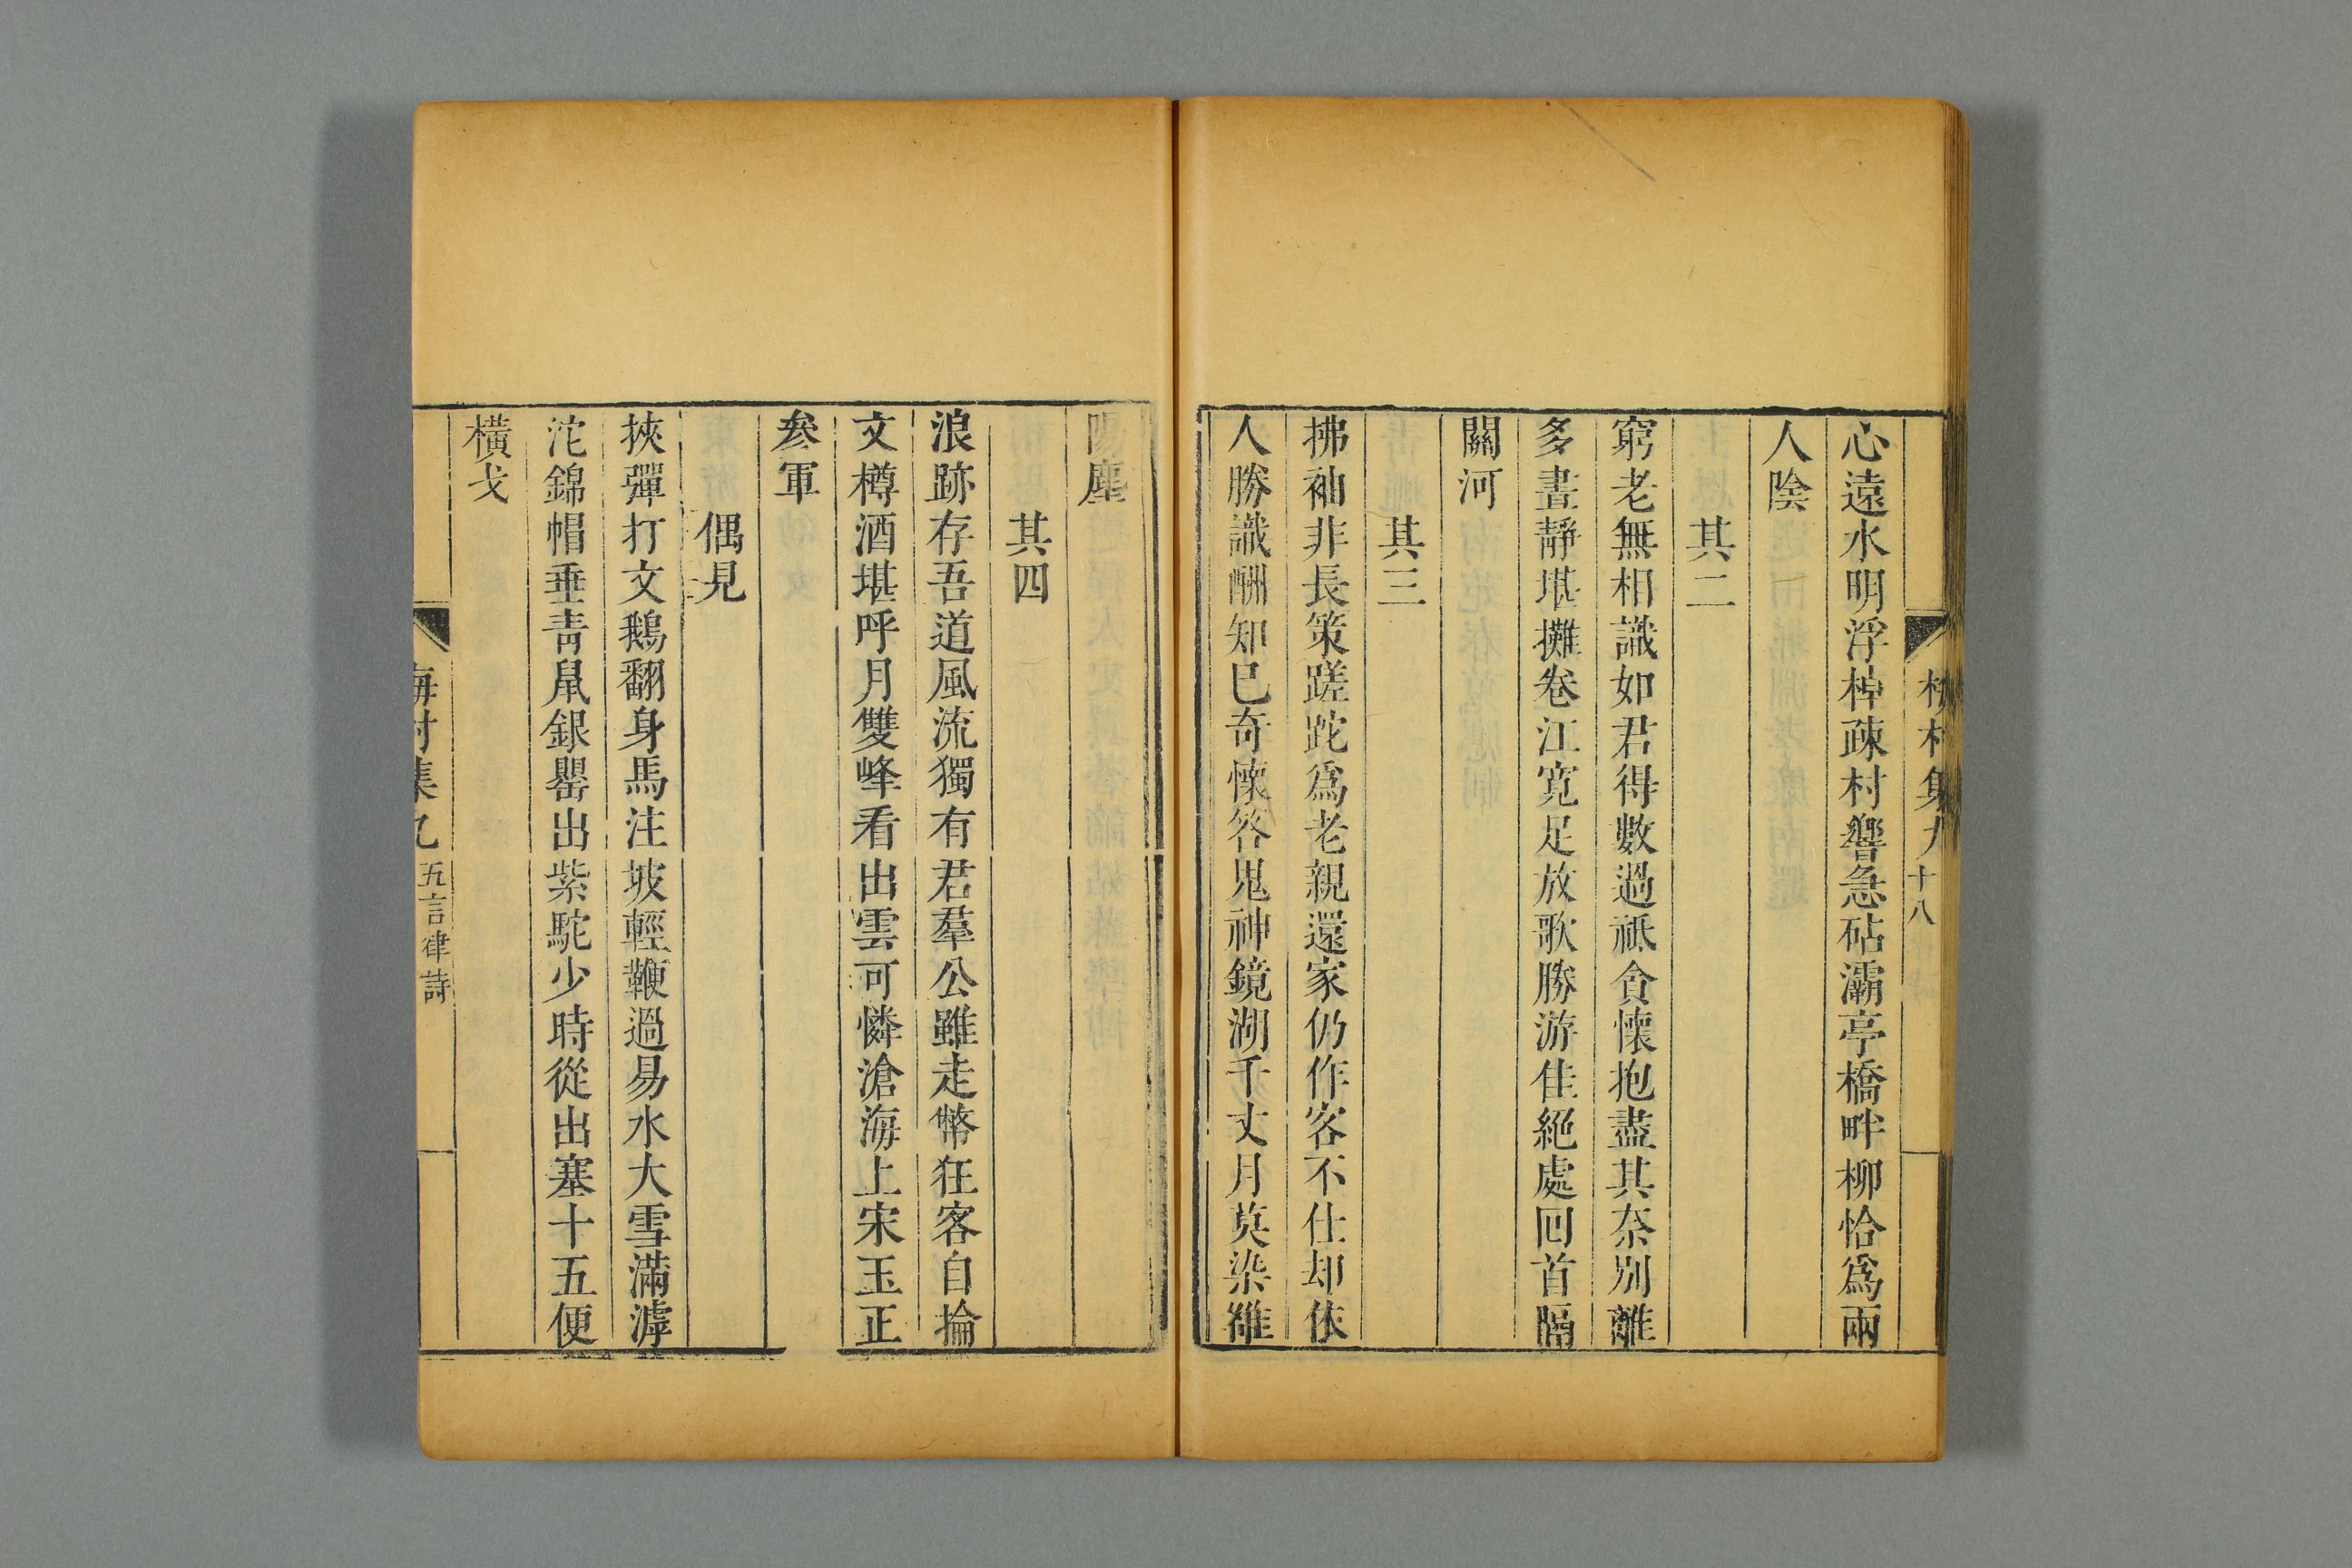 十八
心遠水明浮棹疎村響急砧灞亭橋畔柳恰爲兩
人陰
其二
窮老無相識如君得數過祗貪懷抱盡其奈別離
多晝靜堪攤卷江寛足放歌勝游佳絕處回首隔
關河
其三
拂袖非長策蹉跎爲老親還家仍作客不仕却依
人勝識酬知已奇懷咎鬼神鏡湖千丈月莫染雒
陽塵
其四
浪跡存吾道風流獨有君羣公雖走幣狂客自掄
文樽酒堪呼月雙峰看出雲可憐滄海上宋玉正
叅軍
偶見
挾彈打文鵝翻身馬注坡輕鞭過易水大雪滿滹
沱錦帽垂靑鼠銀罌出紫駝少時從出塞十五便
橫戈
五言律詩